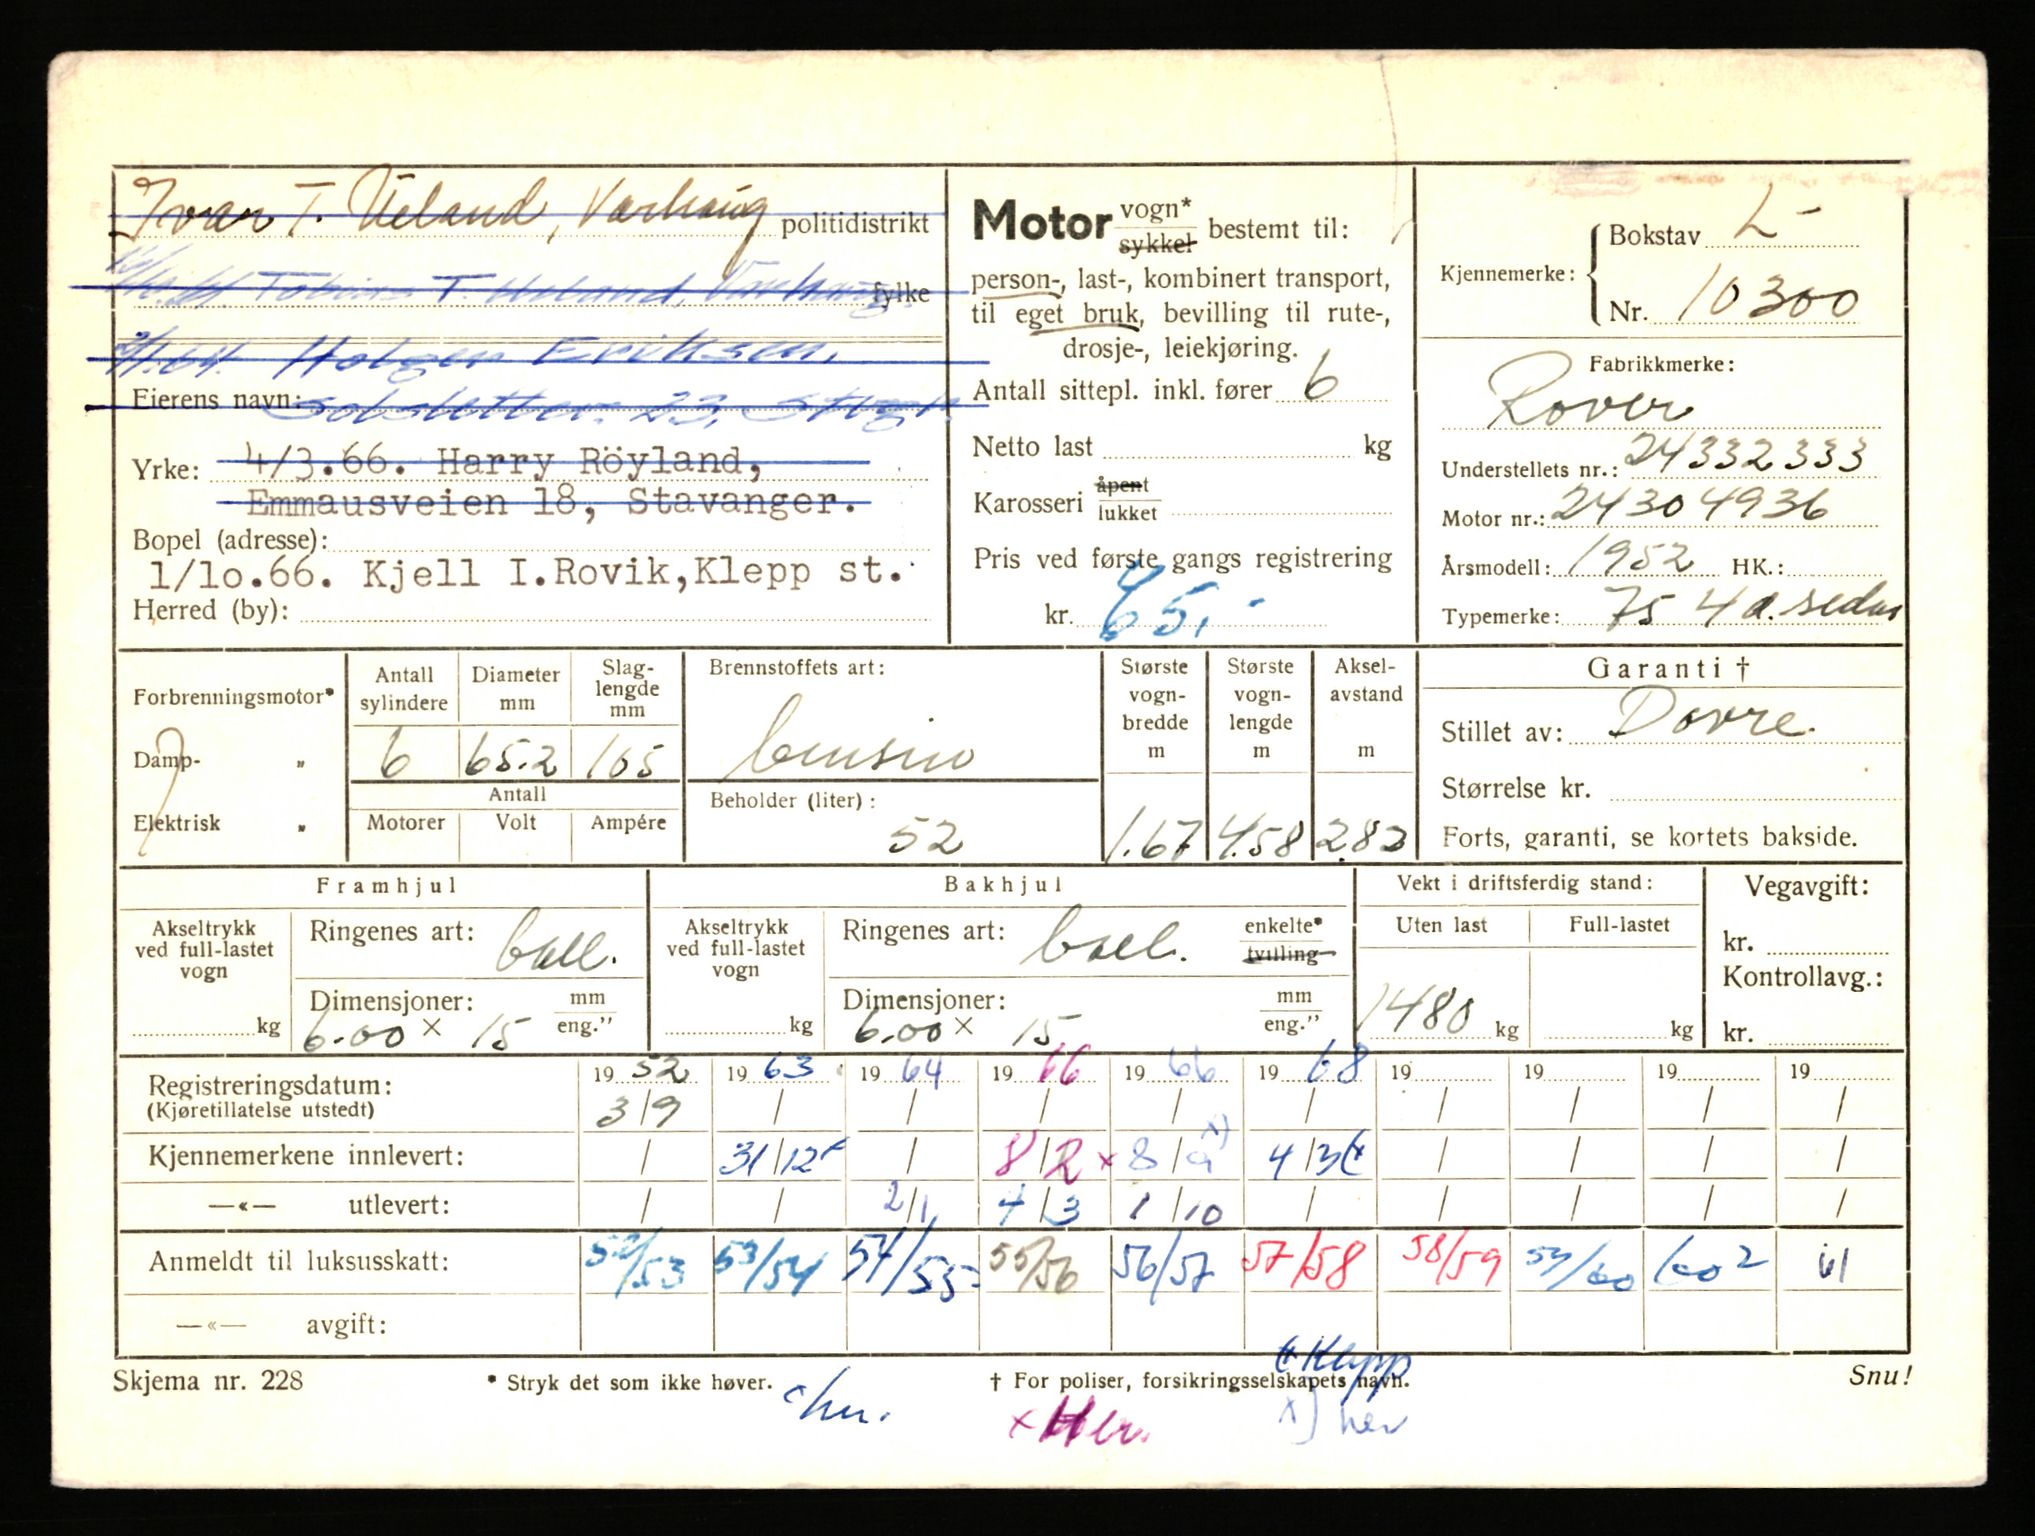 Ivar T. Ueland, Varhaug politidistrikt
Tobias T. Ueland, Varhaug fylke
2/1.64. Holger Eriksen,
Eierens navn: Solsletten 23, Stvgr.
Yrke: 4/3.66. Harry Röyland,
Emmausveien 18, Stavanger.
Bopel (adresse):
1/10.66. Kjell I.Rovik,Klepp st.
Herred (by):
Motor vogn* sykkel bestemt til:
person-, last-, kombinert transport,
til eget bruk, bevilling til rute-,
drosje-, leiekjøring.
Antall sittepl. inkl. fører 6
Netto last kg
Karosseri åpent lukket
Pris ved første gangs registrering
kr. 65,-
Kjennemerke: Bokstav L-
Nr. 10300
Fabrikkmerke:
Rover
Understellets nr.: 24332333
Motor nr.: 24304936
Årsmodell: 1952 HK.:
Typemerke: 75 4 d. sedan
Forbrenningsmotor*
Damp- „
Elektrisk „
Antall sylindere 6
Diameter mm 65.2
Slag-lengde mm 105
Antall
Motorer Volt Ampére
Brennstoffets art:
bensin
Beholder (liter):
52
Største vogn-bredde m 1.67
Største vogn-lengde m 4.58
Aksel-avstand m 2.82
Garanti †
Stillet av: Dovre
Størrelse kr.
Forts, garanti, se kortets bakside.
Framhjul
Akseltrykk ved full-lastet vogn kg
Ringenes art: ball.
Dimensjoner: mm eng.”
6.00 × 15
Bakhjul
Akseltrykk ved full-lastet vogn kg
Ringenes art: ball. enkelte* tvilling
Dimensjoner: mm eng.”
6.00 × 15
Vekt i driftsferdig stand:
Uten last Full-lastet
1480 kg kg
Vegavgift:
kr.
Kontrollavg.:
kr.
Registreringsdatum: 1952 1963 1964 1966 1966 1968 19 19 19 19
(Kjøretillatelse utstedt) 3/9 / / / / / / / / /
Kjennemerkene innlevert: / 31/12 / 8/2 × 8/9 x) 4/3 / / / /
—«— utlevert: / / 2/1 4/3 1/10 / / / / /
Anmeldt til luksusskatt: 52/53 53/54 54/55 55/56 56/57 57/58 58/59 59/60 60 2 61
—«— avgift:
Skjema nr. 228 * Stryk det som ikke høver. † For poliser, forsikringsselskapets navn. Snu!
Klepp
× Her.
x) her